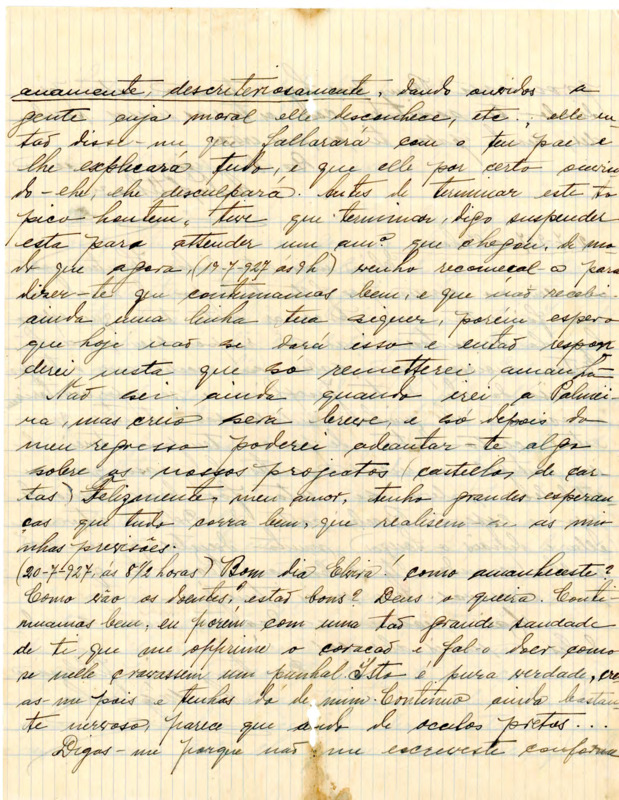 anamente, descriteriosamente, dando ouvidos a
gente cuja moral elle desconhece, etc., elle en-
tão disse-me que fallarará com o teu pae e
lhe explicará tudo, e que elle por certo ouvin-
do-ehe, ehe desculpará. Antes de terminar este to-
pico hontem, tive que terminar, digo suspender
esta para attender um amº que chegou, de mo-
do que agora, (19-7-927 às 9h) venho recomeçal-a para
dizer-te que continuamos bem, e que não recebi
ainda uma linha tua sequer, porém espero
que hoje não se dará isso e então respon
derei nesta que só remetterei amanhã
Não sei ainda quando irei a Palmei-
ra, mas creio será breve, e só depois do
meu regresso poderei adeantar-te algo
sobre os nossos projectos (castellos de car-
tas) Felizmente, meu amor, tenho grandes esperan
ças que tudo corra bem, que realisem-se as mi
nhas previsões.
(20-7-927, ás 8 1/2 horas) Bom dia Elvira! como amanheceste?
Como vão os doentes, estão bons? Deus o queira. Conti-
nuamos bem, eu porém com uma tão grande saudade
de ti que me opprime o coração e fal-o doer como
se nelle cravassem um punhal. Isto é pura verdade, crê
as-me pois e tenhas dó de mim. Continuo ainda bastan
te nervoso, parece que ando de oculos pretos...
Digas-me porque não me escreveste conforme